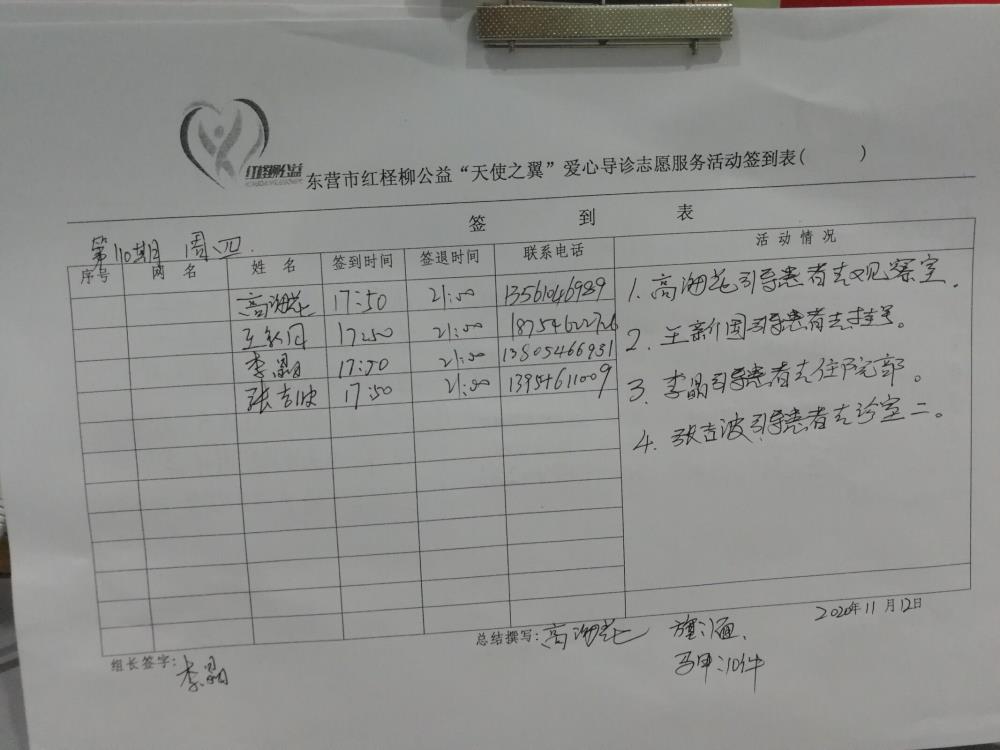 红柽柳公益
东营市红柽柳公益“天使之翼”爱心导诊志愿服务活动签到表( )
签 到 表
第110期 周四.
序号 网 名 姓 名 签到时间 签退时间 联系电话 活 动 情 况
高海花 17:50 21:00 13561046989
王新国 17:50 21:00 18754622726
李晶 17:50 21:00 13805466931
张吉波 17:50 21:00 13954611009
1. 高海花引导患者去观察室.
2. 王新国引导患者去挂号。
3. 李晶引导患者去住院部。
4. 张吉波引导患者去诊室二。
2020年11月12日
总结撰写:高海花 旗:1面.
马甲:10件
组长签字:李晶